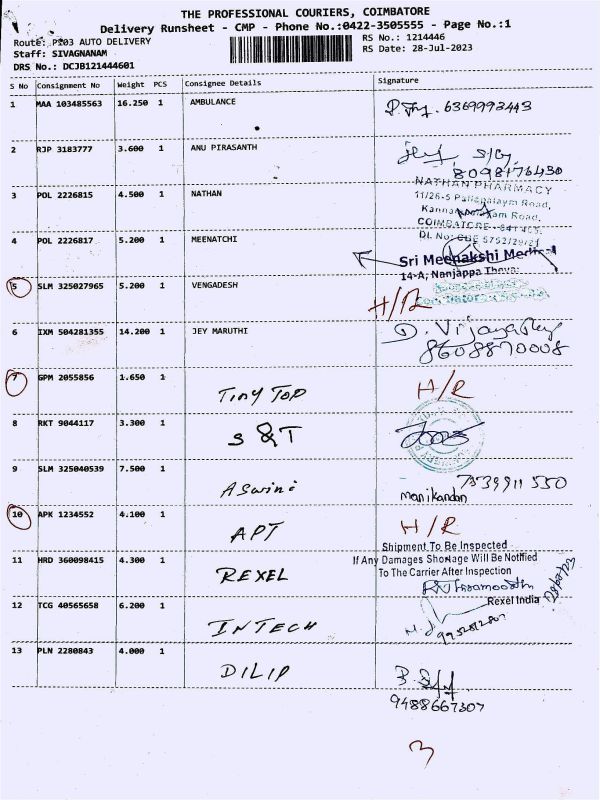 THE PROFESSIONAL COURIERS, COIMBATORE
Delivery Runsheet - CMP - Phone No.:0422-3505555 - Page No.:1
Route: PI03 AUTO DELIVERY
RS No.: 1214446
Staff: SIVAGNANAM
RS Date: 28-Jul-2023
DRS No.: DCJB121444601
S No Consignment No Weight PCS Consignee Details Signature
1 MAA 103485563 16.250 1 AMBULANCE 6369993443
2 RJP 3183777 3.600 1 ANU PIRASANTH
8098176430
3 POL 2226815 4.500 1 NATHAN
NATHAN PHARMACY
Road,
COIMBATORE
4 POL 2226817 5.200 1 MEENATCHI
Sri Meenakshi
14-A, Nanjappa
5 SLM 325027965 5.200 1 VENGADESH H/R
6 IXM 504281355 14.200 1 JEY MARUTHI
8608870008
7 GPM 2055856 1.650 1 Tiny TOP H/R
8 RKT 9044117 3.300 1 S & T
9 SLM 325040539 7.500 1 Aswini manikandan 7539911550
10 APK 1234552 4.100 1 APT H/R
Shipment To Be Inspected
11 HRD 360098415 4.300 1 REXEL
If Any Damages Shortage Will Be Notified
To The Carrier After Inspection
Rexel India
12 TCG 40565658 6.200 1 INTECH
13 PLN 2280843 4.000 1 DILIP
9488667307
3